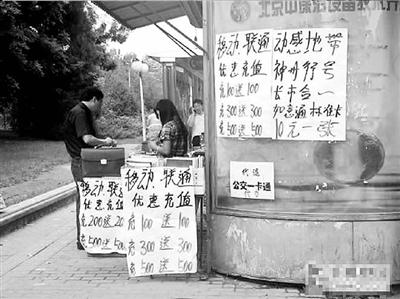 北京
移动.联通
优惠充值
充100送100
充300送300
充500送500
动感地带
神州行号
合一
如意通 标准卡
10元一张
公交一卡通
移动
优惠充值
充200送20
充500送50
移动.联通
优惠充值
充100送100
充300送300
充500送500